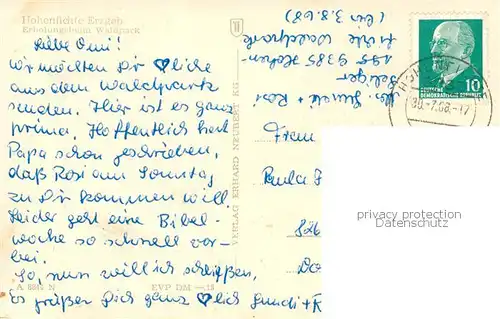 Hohenfichte Erzgeb
Erholungsheim Waldpark
Liebe Omi!
Wir möchten Dir ♡liche
aus dem Waldpark
senden. Hier ist es ganz
prima. Hoffentlich hat
Papa schon geschrieben,
daß Rosi am Sonntag
zu Dir kommen will
Leider geht eine Bibel-
woche so schnell vor-
bei.
So, nun will ich schließen,
Es grüßen Dich ganz ♡lich Gundi +
A N EVP DM
VERLAG ERHARD NEUBERT KG
Abs. Gundi + Rosi
9385 Hohen-
fichte Waldpark
(bis 3.8.68)
DEUTSCHE
DEMOKRATISCHE REPUBLIK
10
30.-7.68.-17
Frau
Paula
privacy protection
Datenschutz